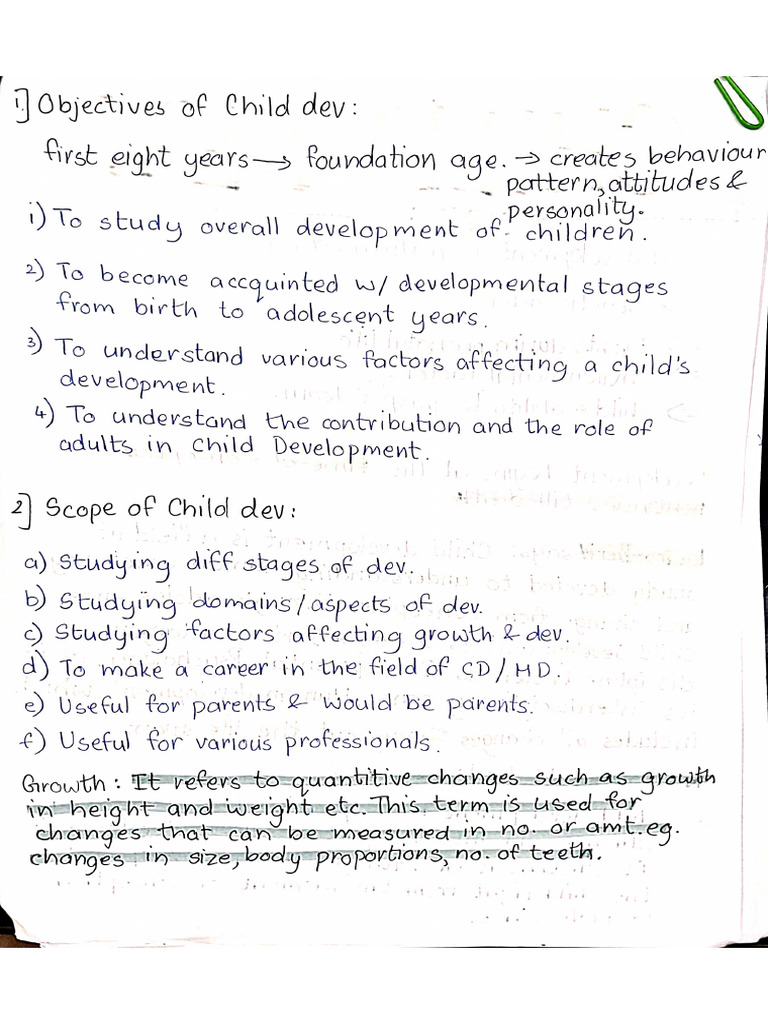 1] Objectives of Child dev:
first eight years → foundation age. → creates behaviour
pattern, attitudes &
personality.
1) To study overall development of children.
2) To become accquinted w/ developmental stages
from birth to adolescent years.
3) To understand various factors affecting a child's
development.
4) To understand the contribution and the role of
adults in Child Development.
2] Scope of Child dev:
a) Studying diff stages of dev.
b) Studying domains/aspects of dev.
c) Studying factors affecting growth & dev.
d) To make a career in the field of CD/HD.
e) Useful for parents & would be parents.
f) Useful for various professionals.
Growth: It refers to quantitive changes such as growth
in height and weight etc. This term is used for
changes that can be measured in no. or amt. eg.
changes in size, body proportions, no. of teeth.